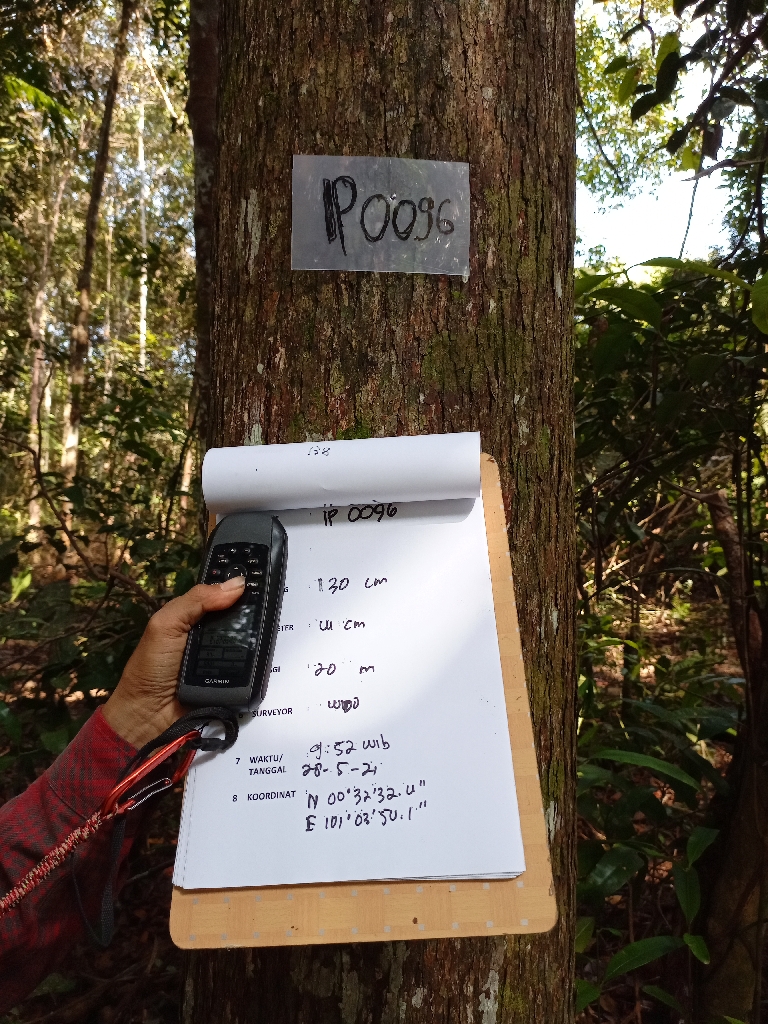 IP0096
138
IP 0096
130 cm
TER : 41 cm
GI : 20 m
SURVEYOR : WIDO
7 WAKTU/ : 9:52 wib
TANGGAL 28-5-21
8 KOORDINAT : N 00°32'32.4"
E 101°03'50.1"
GARMIN